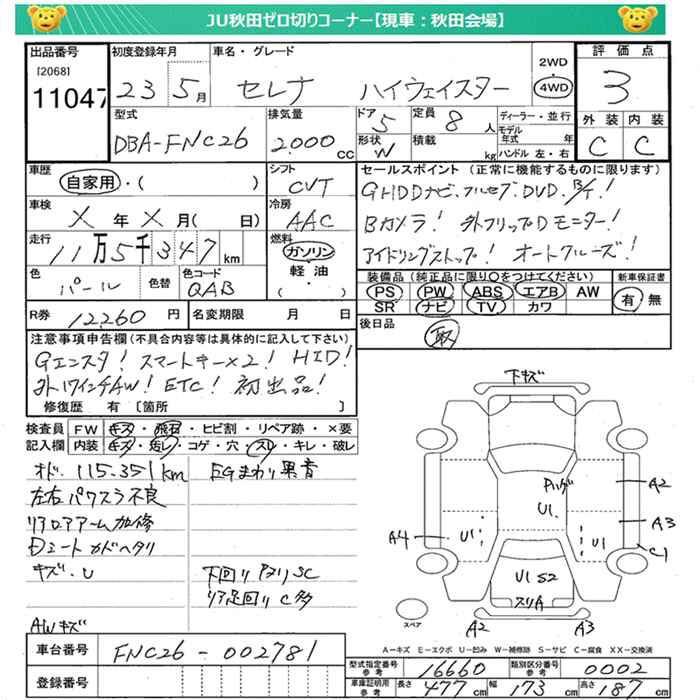 JU秋田ゼロ切りコーナー【現車：秋田会場】
出品番号
[2068]
11047
初度登録年月
23 5月
車名・グレード
セレナ ハイウェイスター
2WD
・
4WD
評価点
3
外装 内装
C C
型式
DBA-FNC26
排気量
2.000 cc
ドア 5
形状 W
定員 8 人
積載 kg
ディーラー・並行
モデル年式 年
ハンドル 左・右
車歴
自家用・( )
シフト
CVT
車検
X 年 X 月 ( 日)
冷房
AAC
走行
11万5千347km
燃料
ガソリン
軽油
( )
色
パール
色替
色コード
QAB
R券 12.260 円
名変期限 月 日
セールスポイント (正常に機能するものに限ります)
GHDDナビ、フルセグ、DVD、B/T!
Bカメラ! 外フリップDモニター!
アイドリングストップ! オートクルーズ!
装備品 (純正品に限り〇をつけてください)
PS PW ABS エアB AW
SR ナビ TV カワ
新車保証書
有・無
後日品
取
注意事項申告欄 (不具合内容等は具体的に記入して下さい)
Gエンスタ! スマートキー×2! HID!
ETC! 初出品!
修復歴 有 [箇所 ]
検査員記入欄
FW キズ・飛石・ヒビ割・リペア跡・×要
内装 キズ・汚レ・コゲ・穴・スレ・キレ・破レ
オド. 115.351km
EGまわり異音
左右パワスラ不良
リアロアアーム加修
キズ・U
下回りサビSC
リア足回りC多
AWキズ
下キズ
A2
A3
C1
A4
U1
U1.
U1
U1 S2
スリA
A2
A3
スペア
A-キズ E-エクボ U-凹み W-補修跡 S-サビ C-腐食 XX-交換済
車台番号
FNC26-002781
登録番号
型式指定番号 参考
16660
類別区分番号 参考
0002
車庫証明用 参考
長さ 477cm 幅 173cm 高さ 187cm